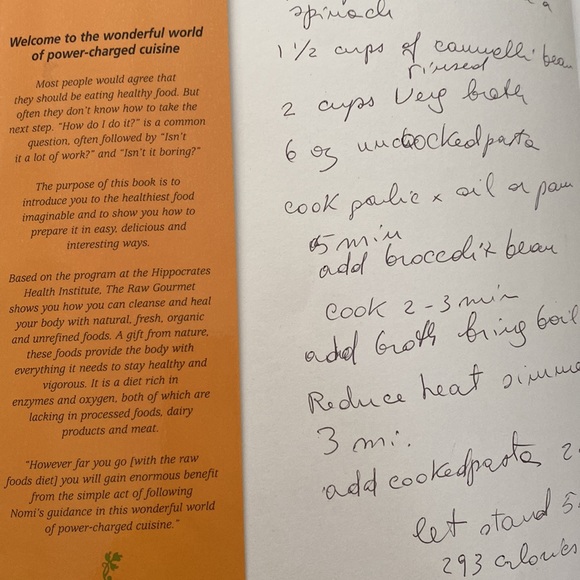 Welcome to the wonderful world
of power-charged cuisine
Most people would agree that
they should be eating healthy food. But
often they don't know how to take the
next step. "How do I do it?" is a common
question, often followed by "Isn't
it a lot of work?" and "Isn't it boring?"
The purpose of this book is to
introduce you to the healthiest food
imaginable and to show you how to
prepare it in easy, delicious and
interesting ways.
Based on the program at the Hippocrates
Health Institute, The Raw Gourmet
shows you how you can cleanse and heal
your body with natural, fresh, organic
and unrefined foods. A gift from nature,
these foods provide the body with
everything it needs to stay healthy and
vigorous. It is a diet rich in
enzymes and oxygen, both of which are
lacking in processed foods, dairy
products and meat.
"However far you go [with the raw
foods diet] you will gain enormous benefit
from the simple act of following
Nomi's guidance in this wonderful world
of power-charged cuisine."
spinach
1 1/2 cups of cannelli bea
rinsed
2 cups Veg broth
6 oz uncoocked pasta
cook garlic x oil
5 min
add broccoli x bean
cook 2-3 min
add broth bring boil
Reduce heat simme
3 mi.
add cooked pasta 2
let stand 5
293 calories